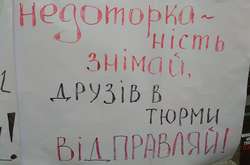 недоторка~
ність
знімай,
друзів в
тюрми
відправляй!